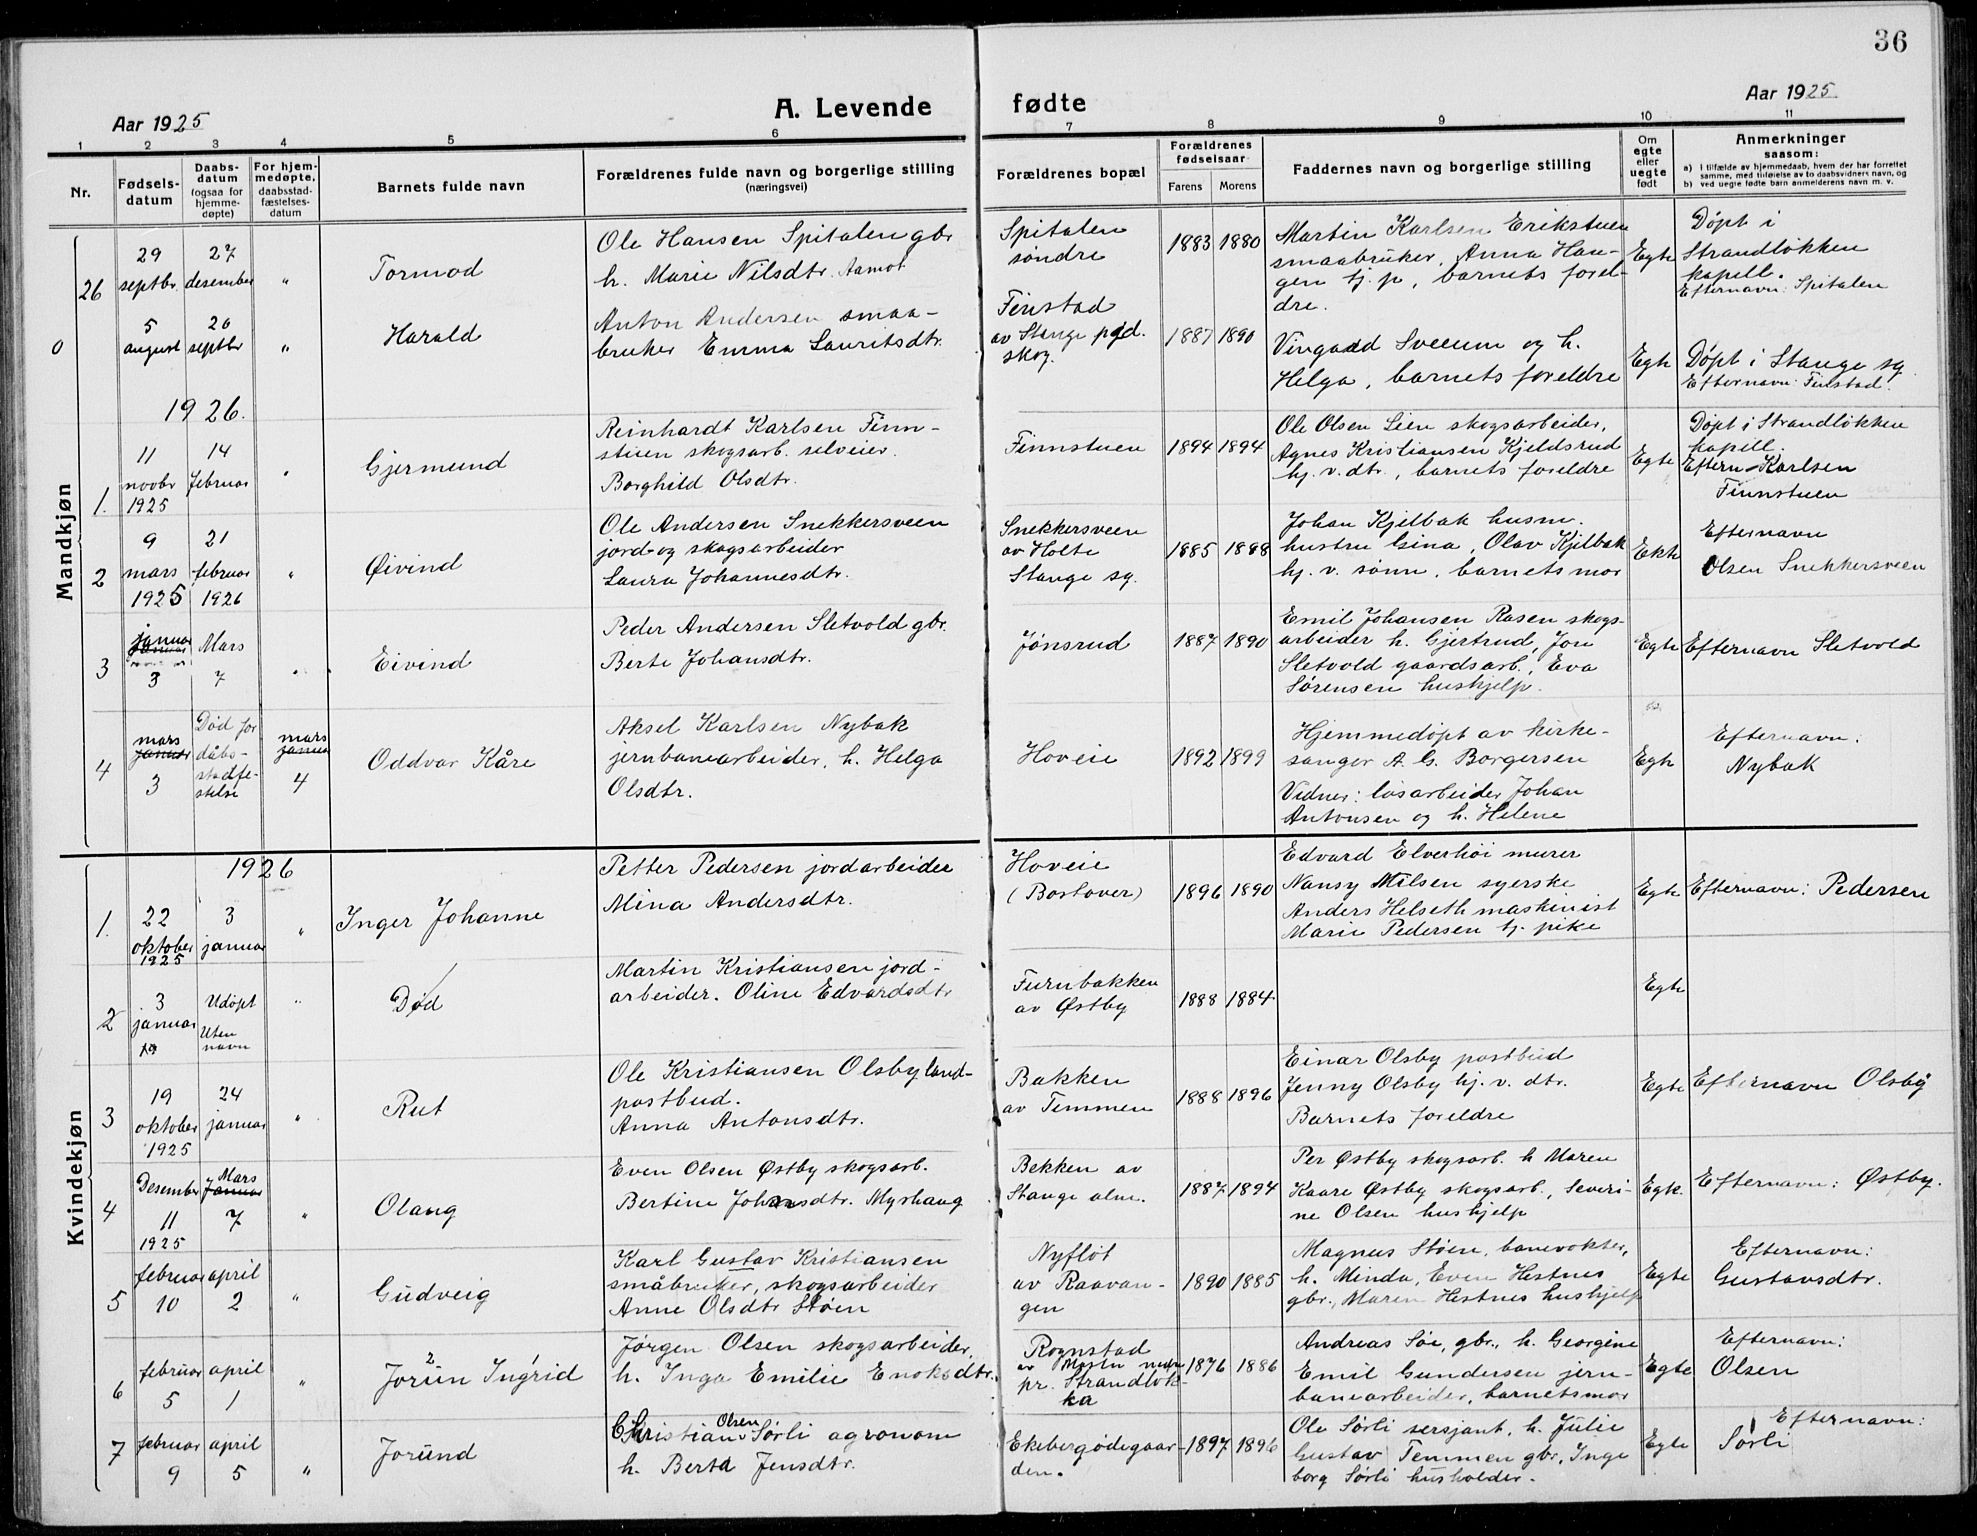 36
Aar 1925
A. Levende fødte
Aar 1925
1 2 3 4 5 6 7 8 9 10 11
Nr.
Fødsels-
datum
Daabs-
datum
(ogsaa for
hjemme-
døpte)
For hjem-
medøpte,
daabsstad-
fæstelses-
datum
Barnets fulde navn
Forældrenes fulde navn og borgerlige stilling
(næringsvei)
Forældrenes bopæl
Forældrenes
fødselsaar
Farens
Morens
Faddernes navn og borgerlige stilling
Om
egte
eller
uegte
født
Anmerkninger
saasom:
a) I tilfælde av hjemmedaab, hvem der har forrettet
samme, med tilføielse av to daabsvidners navn, og
b) ved uegte fødte barn anmelderens navn m. v.
Mandkjøn
26
29
septbr.
27
desember
"
Tormod
Ole Hansen Spitalen gbr
h. Marie Nilsdtr. Aamot
Spitalen
søndre
1883 1880
Martin Karlsen Erikstuen
smaabruker, Anna Hau-
gen tj. p, barnets forel-
dre.
Egte
Døpt i
Strandløkken
kapell.
Efternavn: Spitalen
0
5
august
20
septbr
"
Harald
Anton Andersen smaa-
bruker Emma Lauritsdtr.
Finstad
av Stange pgd.
skog.
1887 1890
Sveeum og h.
Helga, barnets foreldre
Egte
Døpt i Stange sg
Efternavn: Finstad.
1926.
1.
11
novbr
1925
14
februar
"
Gjermund
Reinhardt Karlsen Finn-
stuen skogsarb. selveier.
Borghild Olsdtr.
Finnstuen
1894 1894
Ole Olsen Lien skogsarbeider,
Agnes Kristiansen Kjeldsrud
hj. v. dtr., barnets foreldre
Egte
Døpt i Strandløkken
kapell.
Eftern. Karlsen
Finnstuen
2
9
mars
1925
21
februar
1926
"
Øivind
Ole Andersen Snekkersveen
jord- og skogsarbeider
Laura Johannesdtr.
Snekkersveen
av Holte
Stange sg.
1885 1888
Johan Kjelbak husm.
hustru Gina, Olav Kjelbak
hj. v. sønn, barnets mor
Ekte
Efternavn
Olsen Snekkersveen
3
januar
3
Mars
7
"
Eivind
Peder Andersen Sletvold gbr.
Berte Johansdtr.
Jønsrud
1887 1890
Emil Johansen Rosen skogs-
arbeider h. Gjertrud, Jon
Sletvold gaardsarb., Eva
Sørensen hushjelp.
Egte
Efternavn Sletvold
4
mars
januar
3
Død før
dåbs-
stadfe-
stelse
mars
januar
4
Oddvar Kåre
Aksel Karlsen Nybak
jernbanearbeider, h. Helga
Olsdtr.
Hoveie
1892 1899
Hjemmedøpt av kirke-
sanger A. G. Borgersen
Vidner: løsarbeider Johan
Antonsen og h. Helene
Egte
Efternavn:
Nybak
Kvindekjøn
1926
1.
22
oktober
1925
3
januar
"
Inger Johanne
Petter Pedersen jordarbeider
Mina Andersdtr.
Hoveie
(Bostover)
1896 1890
Edvard Elverhøi murer
Nansy Nilsen syerske
Anders Helseth maskinist
Marie Pedersen tj. pike
Egte
Efternavn: Pedersen
2
3
januar
Udøpt
Uten
navn
"
Død
Martin Kristiansen jord-
arbeider. Oline Edvardsdtr
Furubakken
av Østby
1888 1884
Egte
3
19
oktober
1925
24
januar
"
Rut
Ole Kristiansen Olsby land-
postbud.
Anna Antonsdtr.
Bakken
av Temmen
1888 1896
Einar Olsby postbud
Jenny Olsby hj. v. dtr.
Barnets foreldre
Egte
Efternavn Olsby
4
Desember
11
1925
Mars
Januar
7
"
Olaug
Even Olsen Østby skogsarb.
Bertine Johansdtr. Myrhaug
Bekken av
Stange alm.
1887 1894
Per Østby skogsarb. h Maren
Kaare Østby skogsarb., Severi-
ne Olsen hushjelp
Egte.
Efternavn: Østby.
5
februar
10
april
2
"
Gudveig
Karl Gustav Kristiansen
småbruker, skogsarbeider
Anne Olsdtr Støen
Nyfløt
av Raavan-
gen
1890 1885
Magnus Støen, banevokter,
h. Minda, Even Hestnes
gbr., Maren Hestnes hushjelp
Egte
Efternavn:
Gustavsdtr.
6
februar
5
april
1
"
Jorun Ingrid
Jørgen Olsen skogsarbeider,
h. Inga Emilie Enoksdtr.
Rognstad
pr. Strandløk-
ka
1876 1886
Andreas Søe, gbr., h. Georgine
Emil Gundersen jern-
banearbeider, barnets mor
Egte
Efternavn:
Olsen
7
februar
9
april
5
"
Jorund
Christian Olsen Sørli agronom
h. Berta Jensdtr.
Ekebergødegaar-
den.
1897 1896
Ole Sørli sersjant, h. Julie
Gustav Temmen gbr, Inge
borg Sørli husholder.
Egte
Efternavn:
Sørli